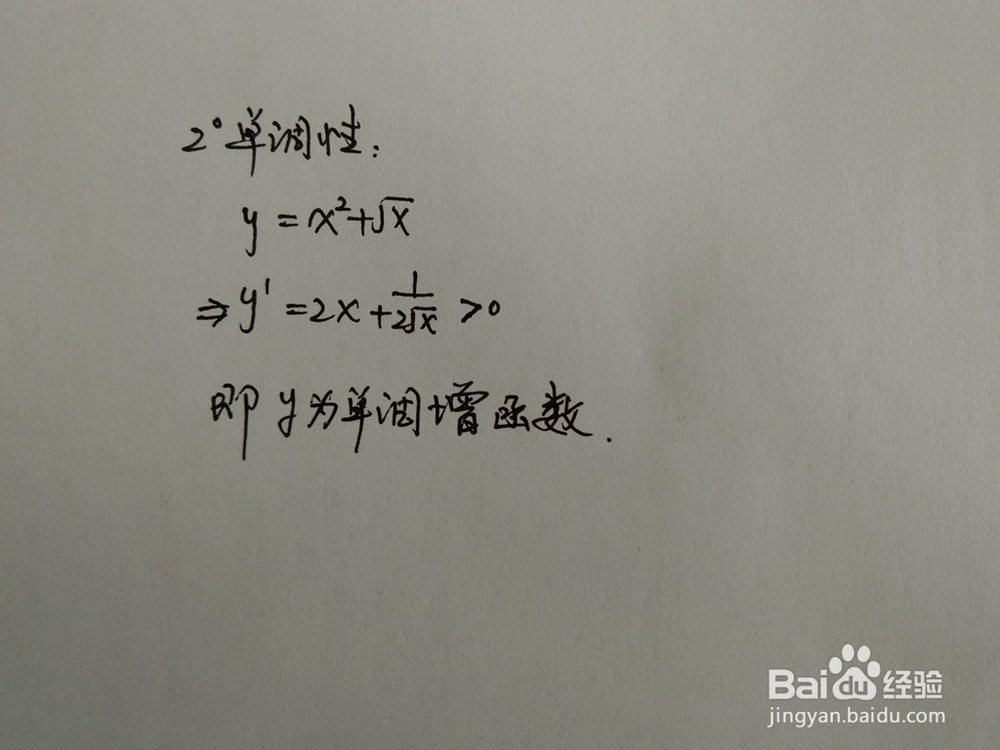 2° 单调性:
y = x²+√x
⇒ y' = 2x + 1/(2√x) >0
即 y为单调增函数.
Baidu 经验
jingyan.baidu.com